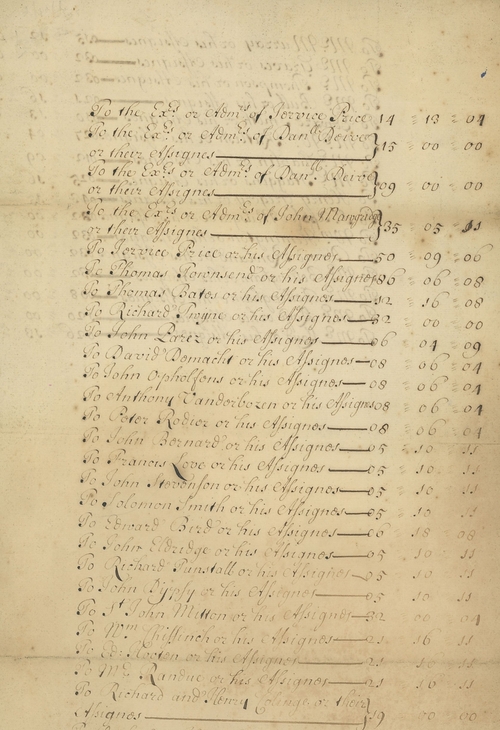 To the Exrs or Admrs of Jervice Price 14 = 13 = 04
To the Exrs or Admrs of Danll
or their Assignes 15 = 00 = 00
To the Exrs or Admrs of Danll
or their Assignes 09 = 00 = 00
To the Exrs or Admrs of John
or their Assignes 35 05 11
To Jervice Price or his Assignes 50 = 09 = 06
To Thomas Townsend or his Assignes 06 = 08
To Thomas Bates or his Assignes 12 = 16 = 08
To Richard or his Assignes 00 = 00
To John or his Assignes 06 = 04 = 09
To David or his Assignes 08 = 06 = 04
To John or his Assignes 08 = 06 = 04
To Anthony Vanderbozen or his Assignes 08 = 06 = 04
To Peter Rodier or his Assignes 08 = 06 04
To John Bernard or his Assignes 05 = 10 = 11
To Francis Love or his Assignes 05 = 10 11
To John Stevenson or his Assignes 05 = 10 11
To Solomon Smith or his Assignes 05 = 10 = 11
To Edward Bird or his Assignes 06 18 08
To John Eldridge or his Assignes 05 = 10 = 11
To Richard Tunstall or his Assignes 05 10 11
To John or his Assignes 05 = 10 = 11
To St John Mitton or his Assignes 00 04
To Wm Chiffinch or his Assignes 21 16 11
To Ed: Hooten or his Assignes 21 16 11
To Mr Randue or his Assignes 21 16 11
To Richard and Henry or their
Assignes 19 00 00